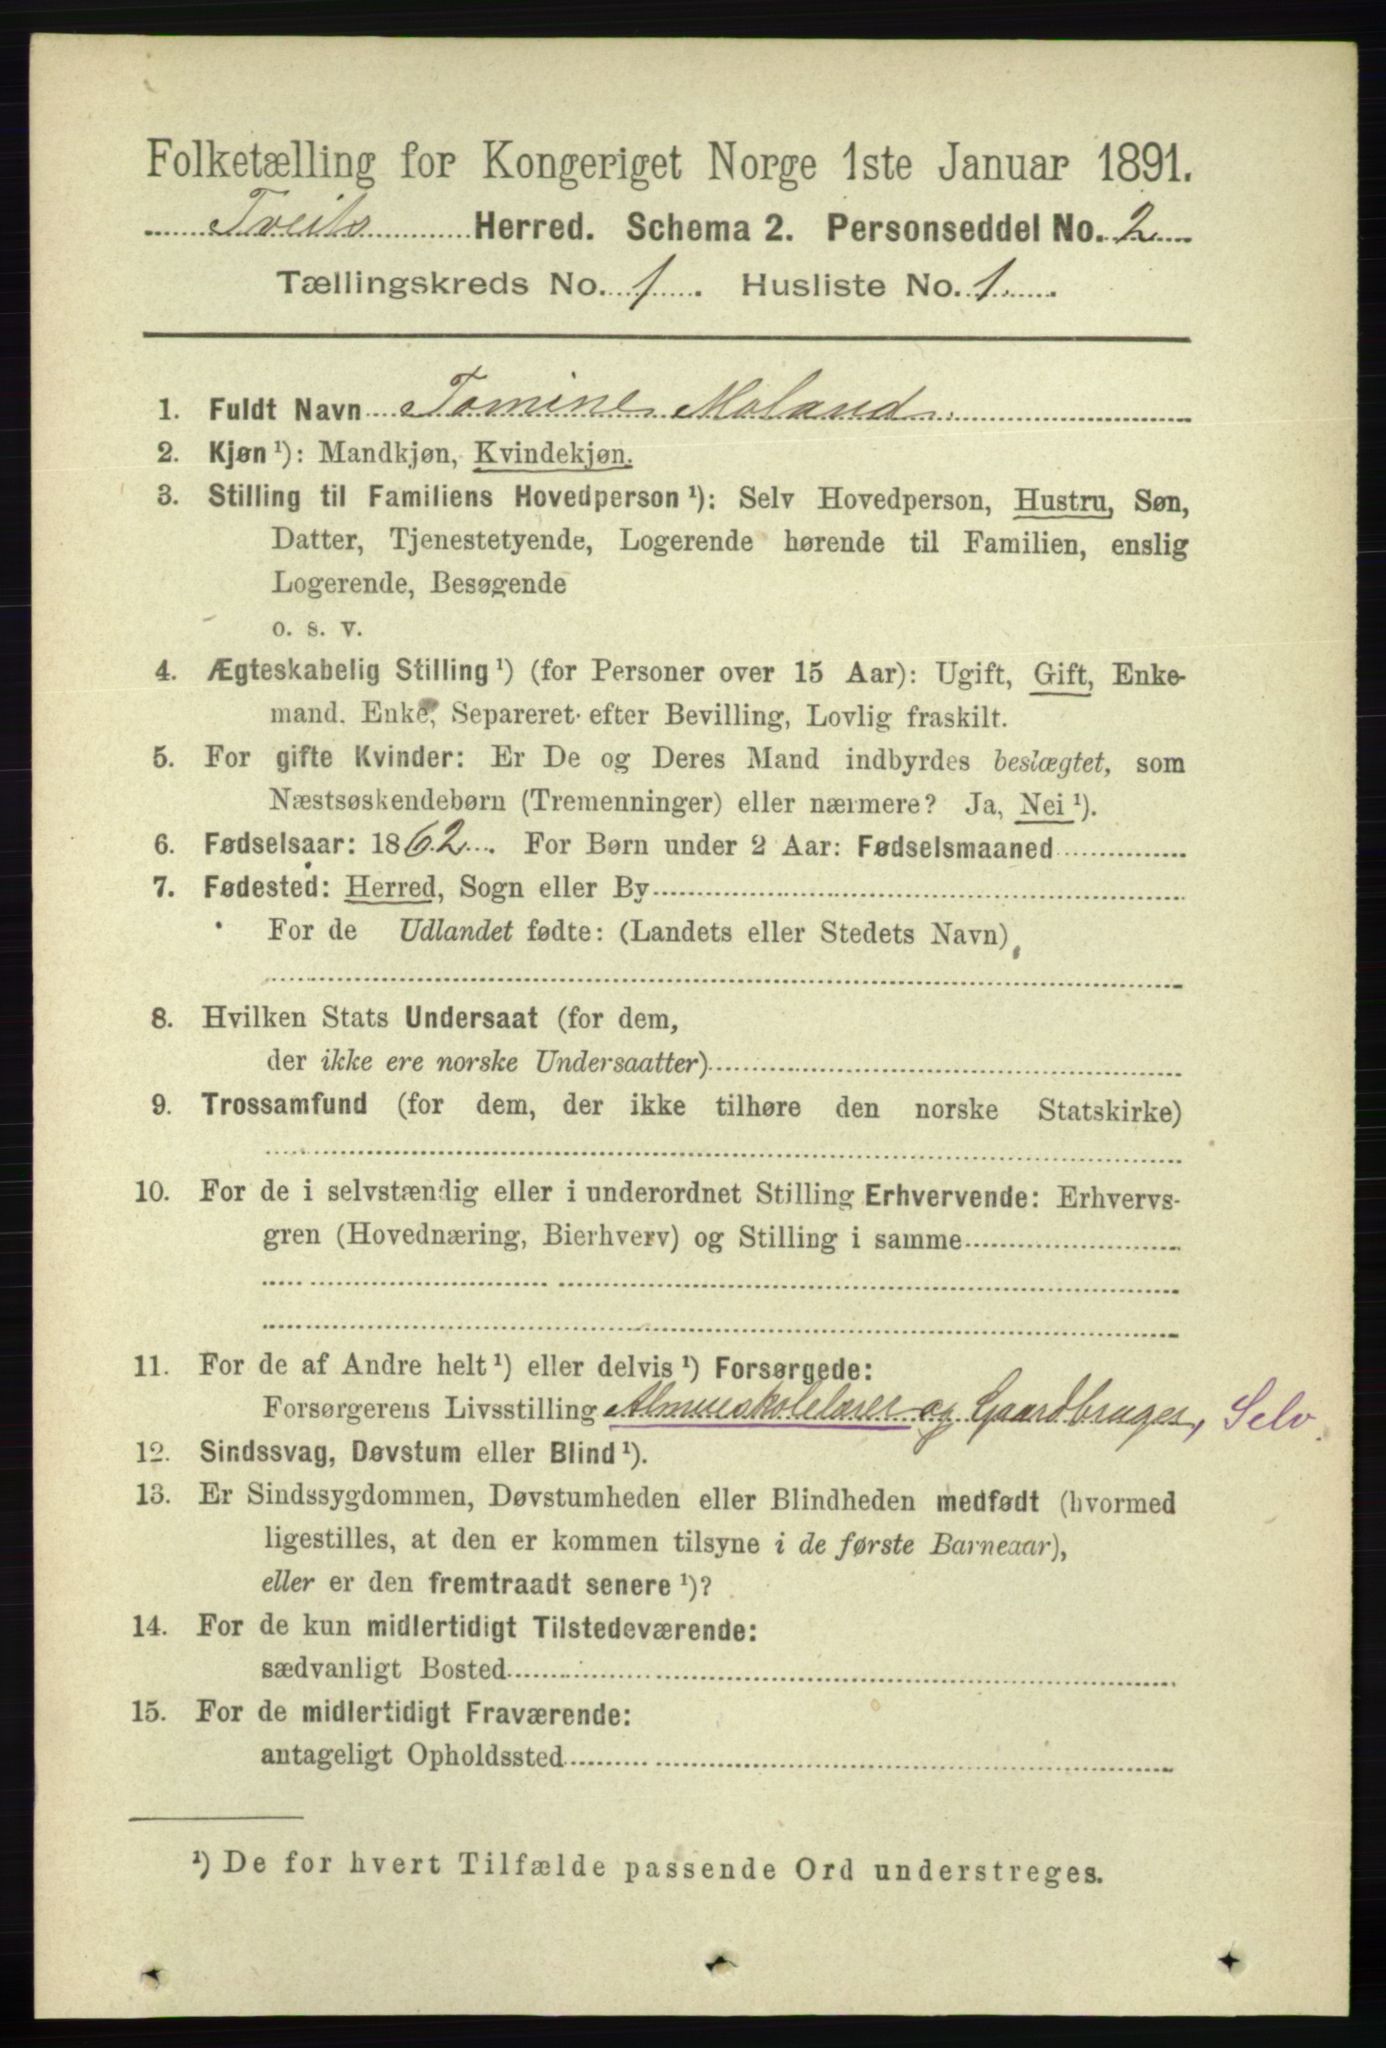 Folketælling for Kongeriget Norge 1ste Januar 1891.
Tveits Herred. Schema 2. Personseddel No. 2
Tællingskreds No. 1. Husliste No. 1
1. Fuldt Navn Tomine Moland
2. Kjøn ¹): Mandkjøn, Kvindekjøn.
3. Stilling til Familiens Hovedperson ¹): Selv Hovedperson, Hustru, Søn,
Datter, Tjenestetyende, Logerende hørende til Familien, enslig
Logerende, Besøgende
o. s. v.
4. Ægteskabelig Stilling ¹) (for Personer over 15 Aar): Ugift, Gift, Enke-
mand, Enke, Separeret efter Bevilling, Lovlig fraskilt.
5. For gifte Kvinder: Er De og Deres Mand indbyrdes beslægtet, som
Næstsøskendebørn (Tremenninger) eller nærmere? Ja, Nei ¹).
6. Fødselsaar: 1862. For Børn under 2 Aar: Fødselsmaaned
7. Fødested: Herred, Sogn eller By
For de Udlandet fødte: (Landets eller Stedets Navn)
8. Hvilken Stats Undersaat (for dem,
der ikke ere norske Undersaatter)
9. Trossamfund (for dem, der ikke tilhøre den norske Statskirke)
10. For de i selvstændig eller i underordnet Stilling Erhvervende: Erhvervs-
gren (Hovednæring, Bierhverv) og Stilling i samme
11. For de af Andre helt ¹) eller delvis ¹) Forsørgede:
Forsørgerens Livsstilling Almueskolelærer og Gaardbruger, Selv.
12. Sindssvag, Døvstum eller Blind ¹).
13. Er Sindssygdommen, Døvstumheden eller Blindheden medfødt (hvormed
ligestilles, at den er kommen tilsyne i de første Barneaar),
eller er den fremtraadt senere ¹)?
14. For de kun midlertidigt Tilstedeværende:
sædvanligt Bosted
15. For de midlertidigt Fraværende:
antageligt Opholdssted
¹) De for hvert Tilfælde passende Ord understreges.